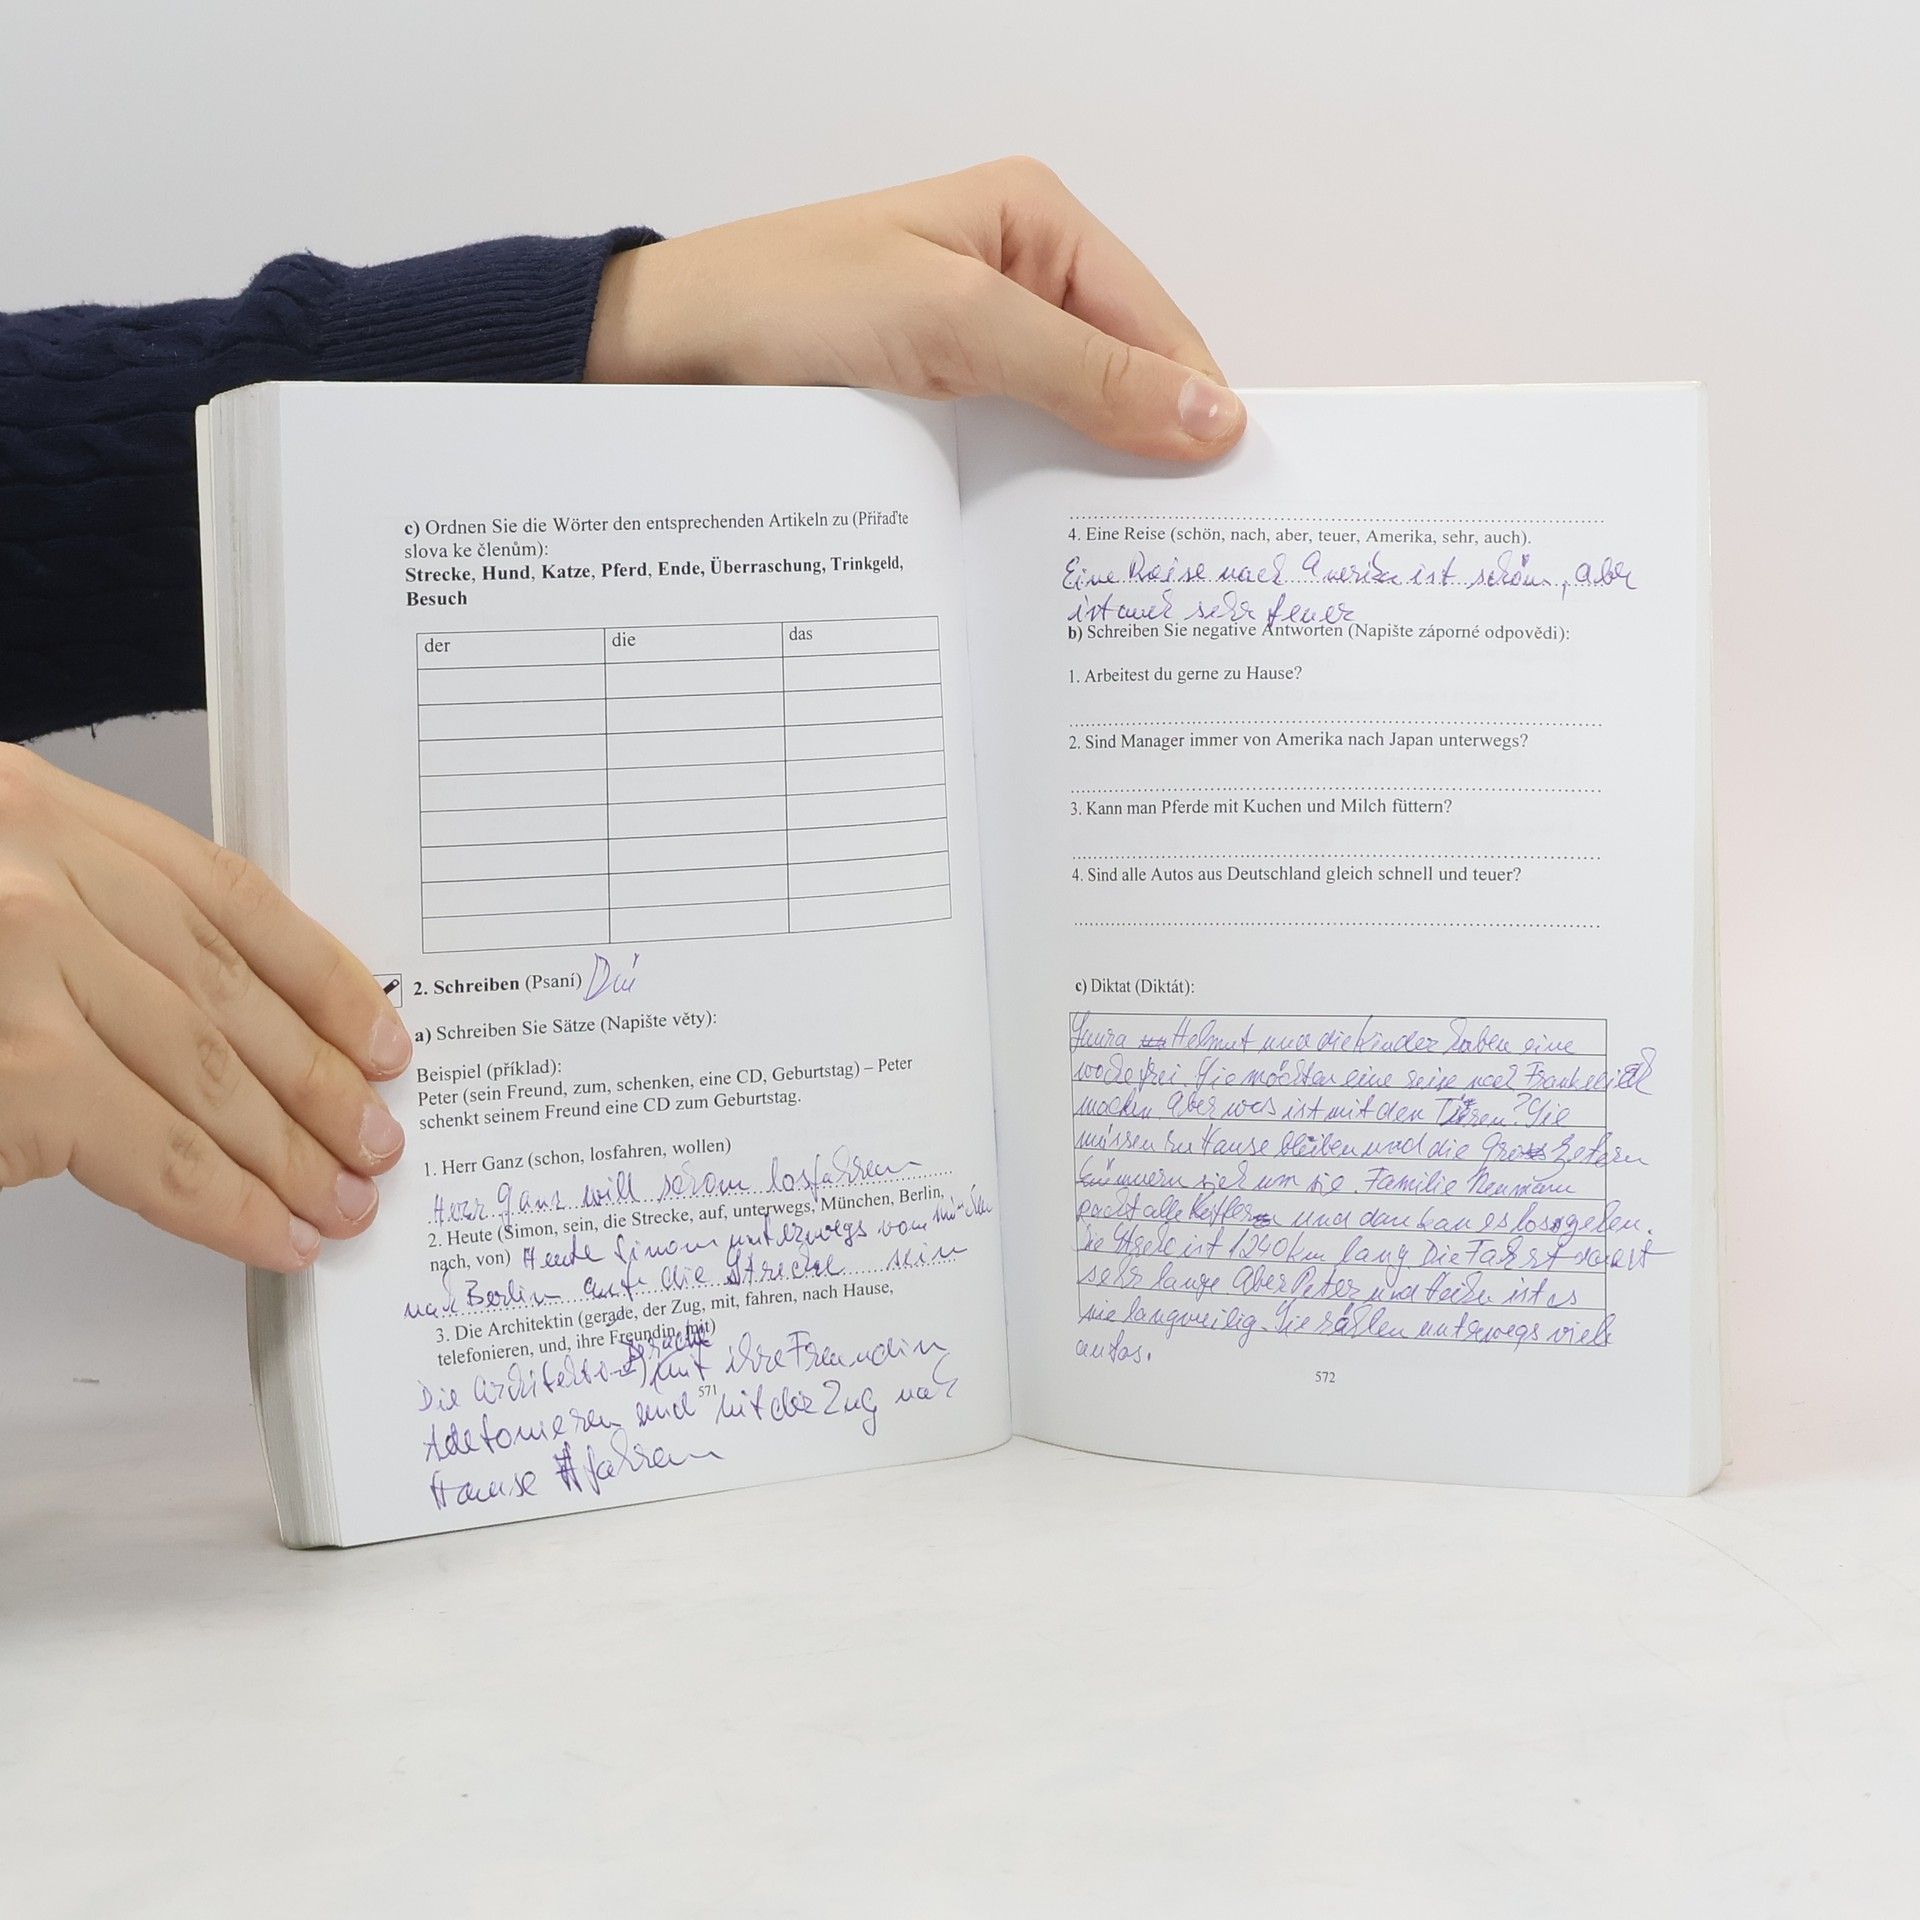 c) Ordnen Sie die Wörter den entsprechenden Artikeln zu (Přiřaďte
slova ke členům):
Strecke, Hund, Katze, Pferd, Ende, Überraschung, Trinkgeld,
Besuch
der die das
2. Schreiben (Psaní)
a) Schreiben Sie Sätze (Napište věty):
Beispiel (příklad):
Peter (sein Freund, zum, schenken, eine CD, Geburtstag) – Peter
schenkt seinem Freund eine CD zum Geburtstag.
1. Herr Ganz (schon, losfahren, wollen)
Herr Ganz will schon losfahren
2. Heute (Simon, sein, die Strecke, auf, unterwegs, München, Berlin,
nach, von) Heute Simon unterwegs von München
nach Berlin auf die Strecke sein
3. Die Architektin (gerade, der Zug, mit, fahren, nach Hause,
telefonieren, und, ihre Freundin, mit)
gerade
Die mit ihre Freundin
telefonieren und mit der Zug nach
571
Hause fahren
4. Eine Reise (schön, nach, aber, teuer, Amerika, sehr, auch).
Eine Reise nach Amerika ist schön, aber
ist auch sehr teuer
b) Schreiben Sie negative Antworten (Napište záporné odpovědi):
1. Arbeitest du gerne zu Hause?
2. Sind Manager immer von Amerika nach Japan unterwegs?
3. Kann man Pferde mit Kuchen und Milch füttern?
4. Sind alle Autos aus Deutschland gleich schnell und teuer?
c) Diktat (Diktát):
Helmut und die Kinder haben eine
woche frei. Sie möchten eine reise nach
machen. Aber was ist mit den Tieren? Sie
müssen zu Hause bleiben und die
kümmern sich um sie. Familie Neumann
packt alle und dan kan es losgehen.
Die ist 1240 km lang. Die Fahrt dauert
sehr lange. Aber Peter und ist es
nie langweilig. Sie unterwegs viele
autos.
572